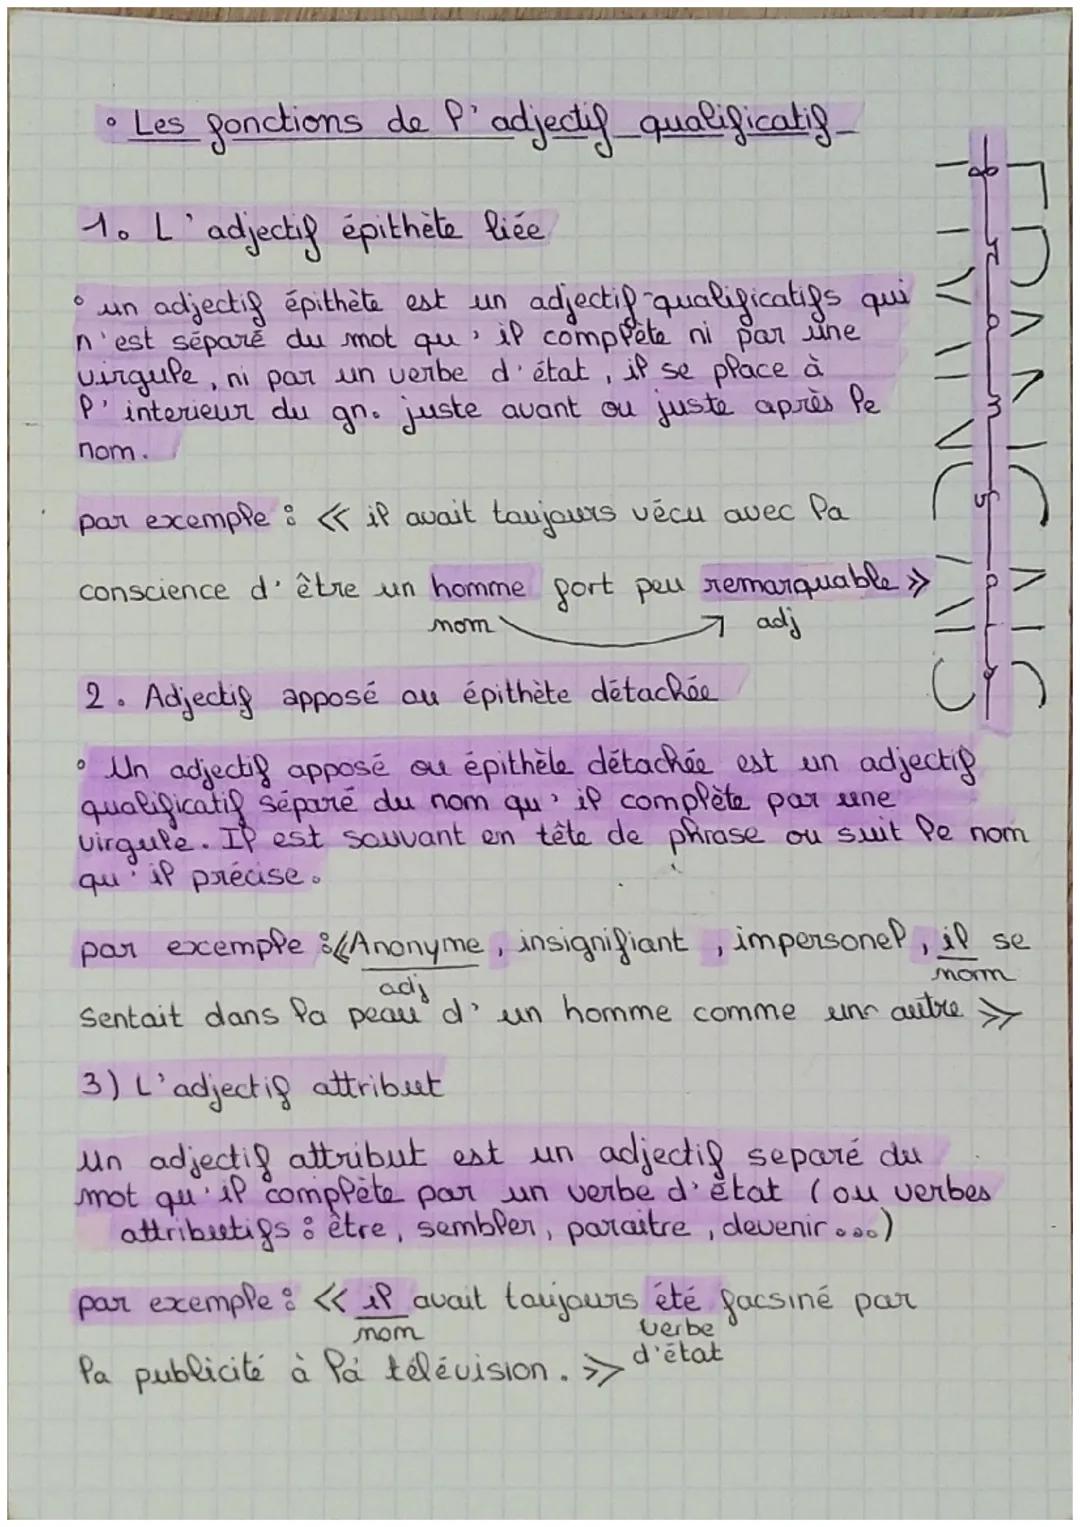 ° Les fonctions de l'adjectif qualificatif
FRANÇAIS
français
1. L'adjectif épithète liée
° un adjectif épithète est un adjectif qualificatifs qui
n'est séparé du mot qu'il complète ni par une
virgule, ni par un verbe d'état, il se place à
l'interieur du gn. juste avant ou juste après le
nom.
par exemple : « il avait toujours vécu avec la
conscience d'être un homme fort peu remarquable »
nom adj
2. Adjectif apposé ou épithète détachée
° Un adjectif apposé ou épithète détachée est un adjectif
qualificatif séparé du nom qu'il complète par une
virgule. Il est souvant en tête de phrase ou suit le nom
qu'il précise.
par exemple : « Anonyme, insignifiant, impersonel, il se
adj nom
sentait dans la peau d'un homme comme un autre »
3) L'adjectif attribut
Un adjectif attribut est un adjectif separé du
mot qu'il complète par un verbe d'état (ou verbes
attributifs : être, sembler, paraitre, devenir...)
par exemple : « il avait toujours été facsiné par
nom verbe d'état
la publicité à la télévision. »